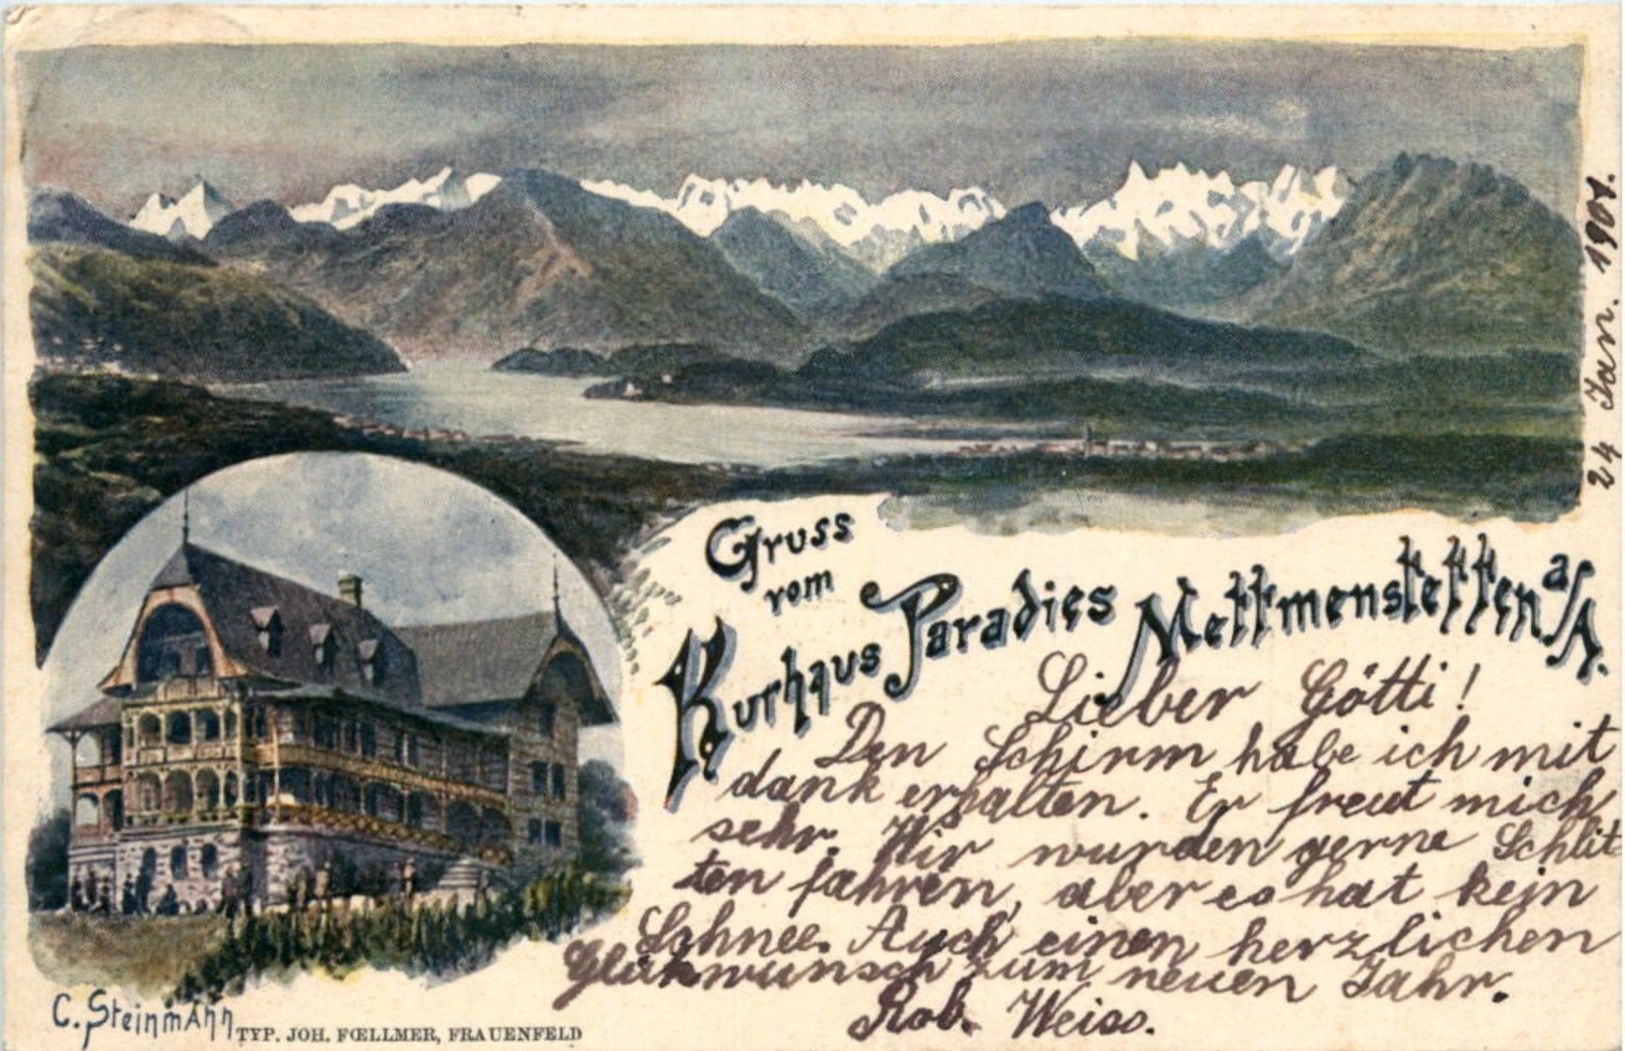 24 Jan. 1901.
Gruss
vom
Kurhaus Paradies Mettmenstetten a/A.
Lieber Götti!
Den Schirm habe ich mit
dank erhalten. Er freut mich
sehr. Wir wurden gerne Schlit-
ten fahren, aber es hat kein
Schnee. Auch einen herzlichen
Glükwunsch zum neuen Jahr.
Rob. Weiss.
C. Steinmann
TYP. JOH. FŒLLMER, FRAUENFELD